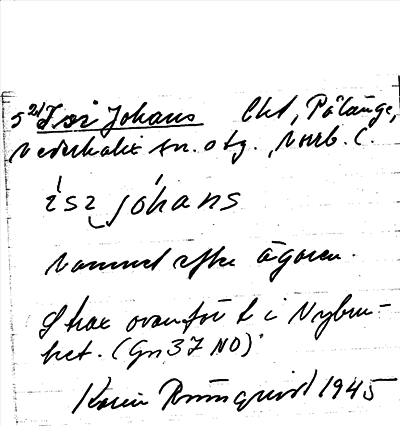 5²¹ Isi Johans Ckl, Pålänge,
Nederkalix sn. o tg., Norrb. l.
ɪsɪ jóhans
Namnet efter ägaren.
Strax ovanför t i Nybru-
ket. (Gn 37 NO)
Karin 1945